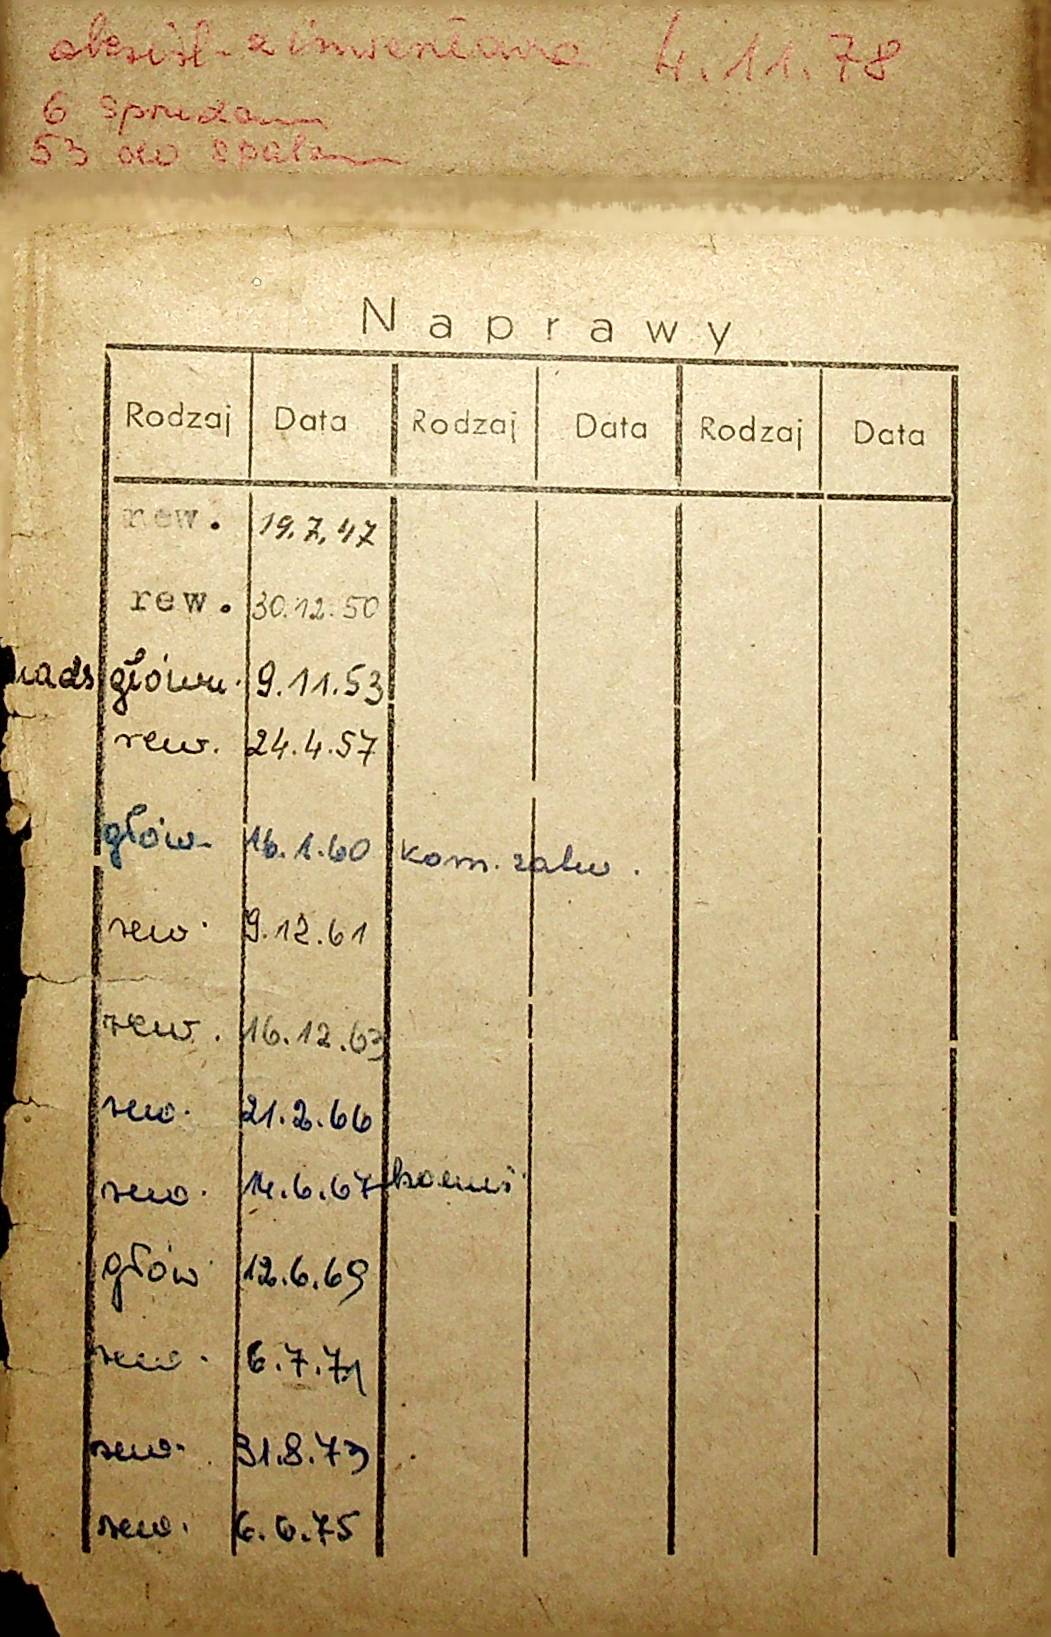 z inwentarza 4.11.78
6 sprzedam
53 do
Naprawy
Rodzaj Data Rodzaj Data Rodzaj Data
rew. 19.7.47
rew. 30.12.50
nads główn. 9.11.53
rew. 24.4.57
głów. 16.1.60 kom. zakw.
rew. 9.12.61
rew. 16.12.63
rew. 21.2.66
rew. 14.6.67
głów 12.6.69
rew. 6.7.71
rew. 31.8.73
rew. 6.6.75